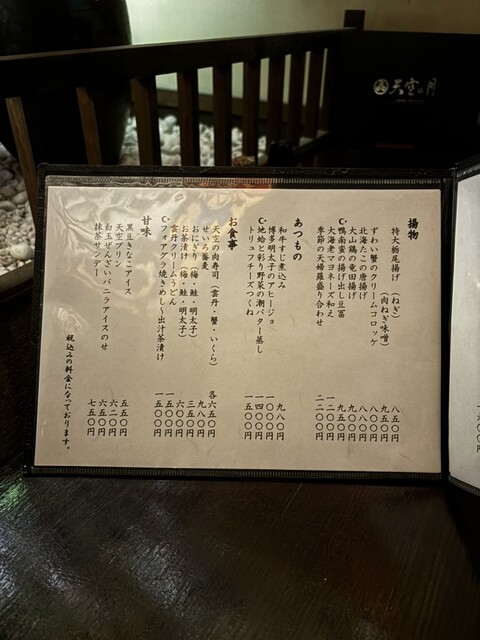 天空の月
揚物
特大栃尾揚げ（ねぎ） 八五〇円
（肉ねぎ味噌） 九五〇円
ずわい蟹のクリームコロッケ 八〇〇円
北海たこの唐揚げ 八八〇円
大山鶏の竜田揚げ 九〇〇円
鴨南蛮の揚げ出し豆冨 九五〇円
大海老マヨネーズ和え 一二〇〇円
季節の天婦羅盛り合わせ 二二〇〇円
あつもの
和牛すじ煮込み 九八〇円
博多明太子のアヒージョ 一〇〇〇円
地蛤と彩り野菜の潮バター蒸し 一四〇〇円
トリュフチーズつくね 一五〇〇円
お食事
天空の肉寿司（雲丹・蟹・いくら） 各六五〇円
せいろ蕎麦 九八〇円
おにぎり（梅・鮭・明太子） 三五〇円
お茶漬け（梅・鮭・明太子） 六〇〇円
雲丹クリームうどん 一五〇〇円
フォアグラ焼きめし〜出汁茶漬け 一五〇〇円
甘味
黒豆きなこアイス 五五〇円
天空プリン 六二〇円
白玉ぜんざいバニラアイスのせ 六五〇円
抹茶サンデー 七五〇円
税込みの料金になっております。